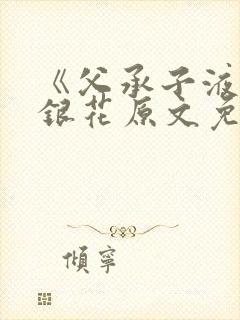 《父承子液
銀花原文免
傾寧